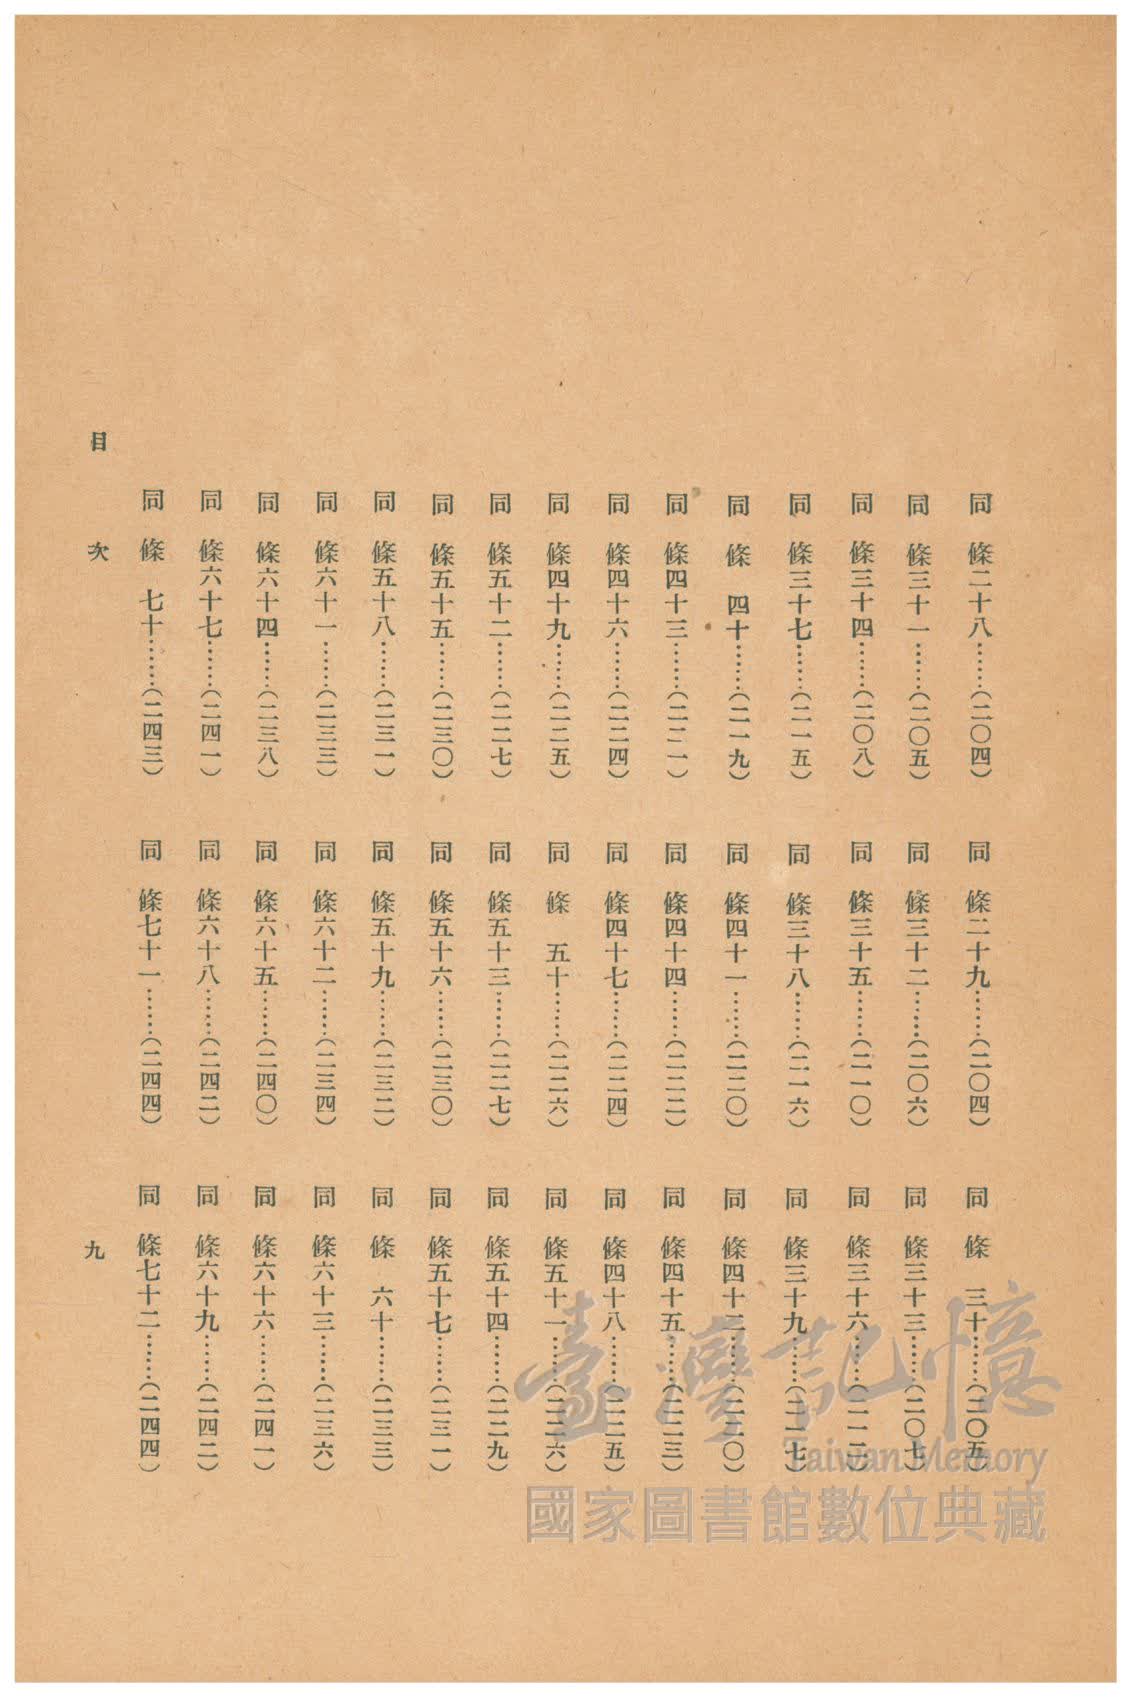 同 條二十八……(二〇四) 同 條二十九……(二〇四) 同 條 三十……(二〇五)
同 條三十一……(二〇五) 同 條三十二……(二〇六) 同 條三十三……(二〇七)
同 條三十四……(二〇八) 同 條三十五……(二一〇) 同 條三十六……(二一二)
同 條三十七……(二一五) 同 條三十八……(二一六) 同 條三十九……(二一七)
同 條 四十……(二一九) 同 條四十一……(二二〇) 同 條四十二……(二二〇)
同 條四十三……(二二一) 同 條四十四……(二二二) 同 條四十五……(二二三)
同 條四十六……(二二四) 同 條四十七……(二二四) 同 條四十八……(二二五)
同 條四十九……(二二五) 同 條 五十……(二二六) 同 條五十一……(二二六)
同 條五十二……(二二七) 同 條五十三……(二二七) 同 條五十四……(二二九)
同 條五十五……(二三〇) 同 條五十六……(二三〇) 同 條五十七……(二三一)
同 條五十八……(二三一) 同 條五十九……(二三二) 同 條 六十……(二三三)
同 條六十一……(二三三) 同 條六十二……(二三四) 同 條六十三……(二三六)
同 條六十四……(二三八) 同 條六十五……(二四〇) 同 條六十六……(二四一)
同 條六十七……(二四一) 同 條六十八……(二四二) 同 條六十九……(二四二)
同 條 七十……(二四三) 同 條七十一……(二四四) 同 條七十二……(二四四)
目 次 九
臺灣記憶
Taiwan Memory
國家圖書館數位典藏